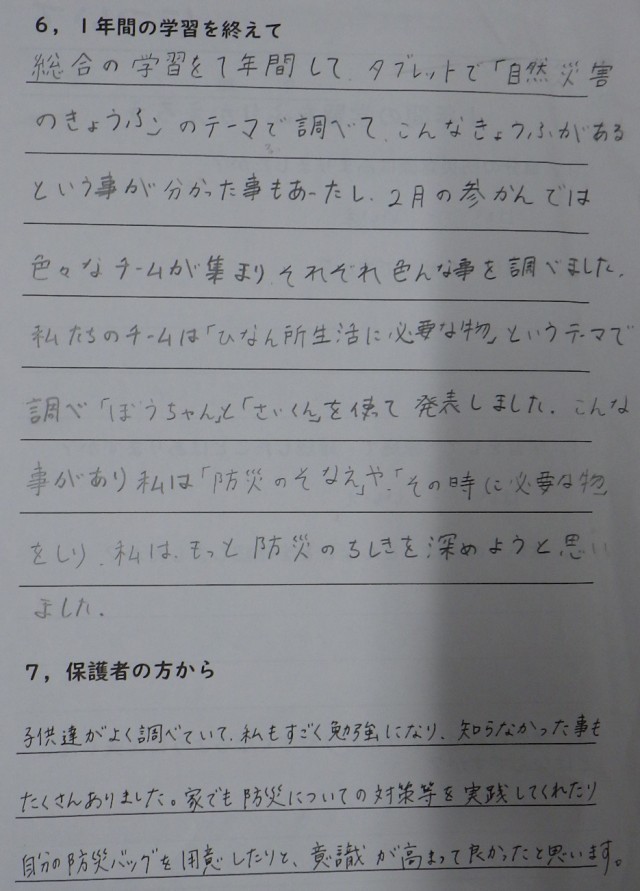 6，１年間の学習を終えて
総合の学習を1年間して、タブレットで「自然災害
のきょうふ」のテーマで調べて、こんなきょうふがある
という事が分かった事もあったし、2月の参かんでは
色々なチームが集まり、それぞれ色んな事を調べました。
私たちのチームは「ひなん所生活に必要な物」というテーマで
調べ「ぼうちゃん」と「さいくん」を使って発表しました。こんな
事があり私は「防災のそなえ」や、「その時に必要な物」
をしり、私は、もっと防災のちしきを深めようと思い
ました。
7，保護者の方から
子供達がよく調べていて、私もすごく勉強になり、知らなかった事も
たくさんありました。家でも防災についての対策等を実践してくれたり
自分の防災バッグを用意したりと、意識が高まって良かったと思います。